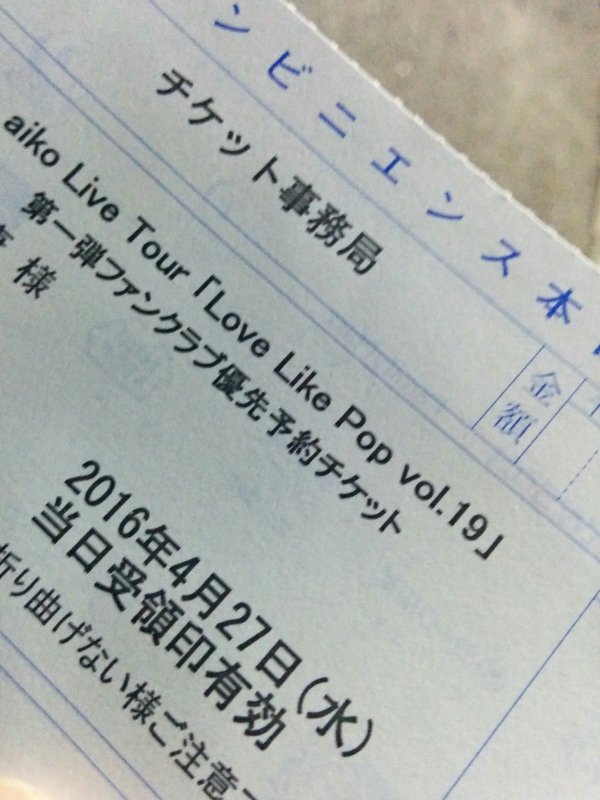 ンビニエンス本
チケット事務局
aiko Live Tour「Love Like Pop vol.19」
第一弾ファンクラブ優先予約チケット
様
金額
2016年4月27日(水)
当日受領印有効
折り曲げない様ご注意